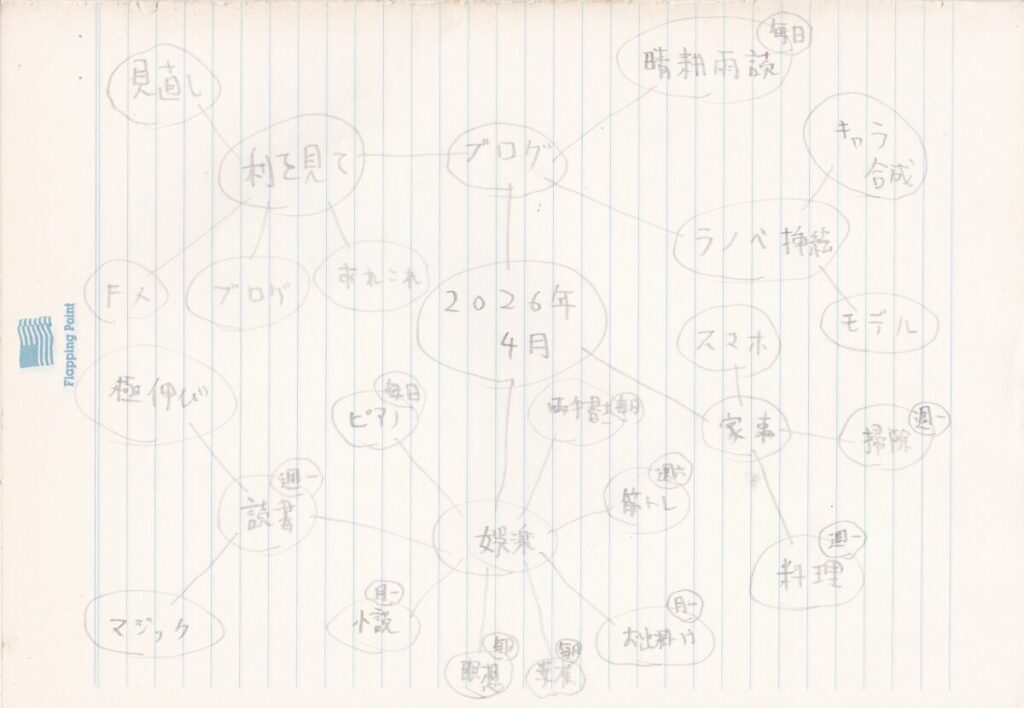 見直し
毎日
晴耕雨読
キャラ
合成
利を見て
ブログ
ラノベ挿絵
FX
ブログ
あれこれ
2026年
4月
スマホ
モデル
Flapping Point
極伸び
毎日
ピアノ
両手書き
毎日
家事
週一
掃除
週一
読書
週六
筋トレ
娯楽
週一
料理
マジック
月一
小説
月一
お出掛け
毎日
瞑想
毎日